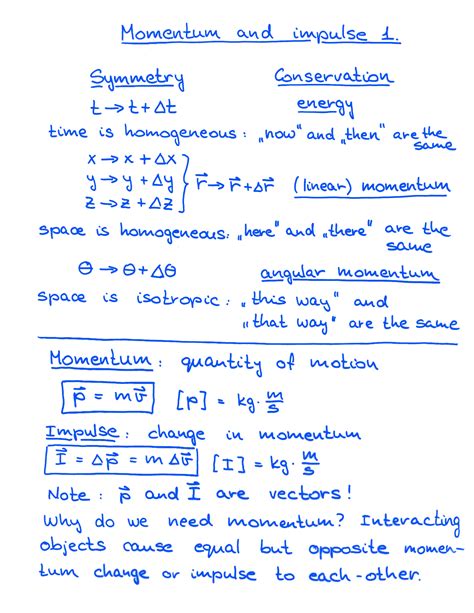 Momentum and impulse 1.
Symmetry Conservation
t → t + Δt energy
time is homogeneous: „now" and „then" are the same
x → x + Δx
y → y + Δy } r⃗ → r⃗ + Δr⃗ (linear) momentum
z → z + Δz
space is homogeneous: „here" and „there" are the same
Θ → Θ + ΔΘ angular momentum
space is isotropic: „this way" and
„that way" are the same
Momentum: quantity of motion
p⃗ = mv⃗ [p] = kg · m/s
Impulse: change in momentum
I⃗ = Δp⃗ = mΔv⃗ [I] = kg · m/s
Note: p⃗ and I⃗ are vectors!
Why do we need momentum? Interacting
objects cause equal but opposite momen-
tum change or impulse to each-other.